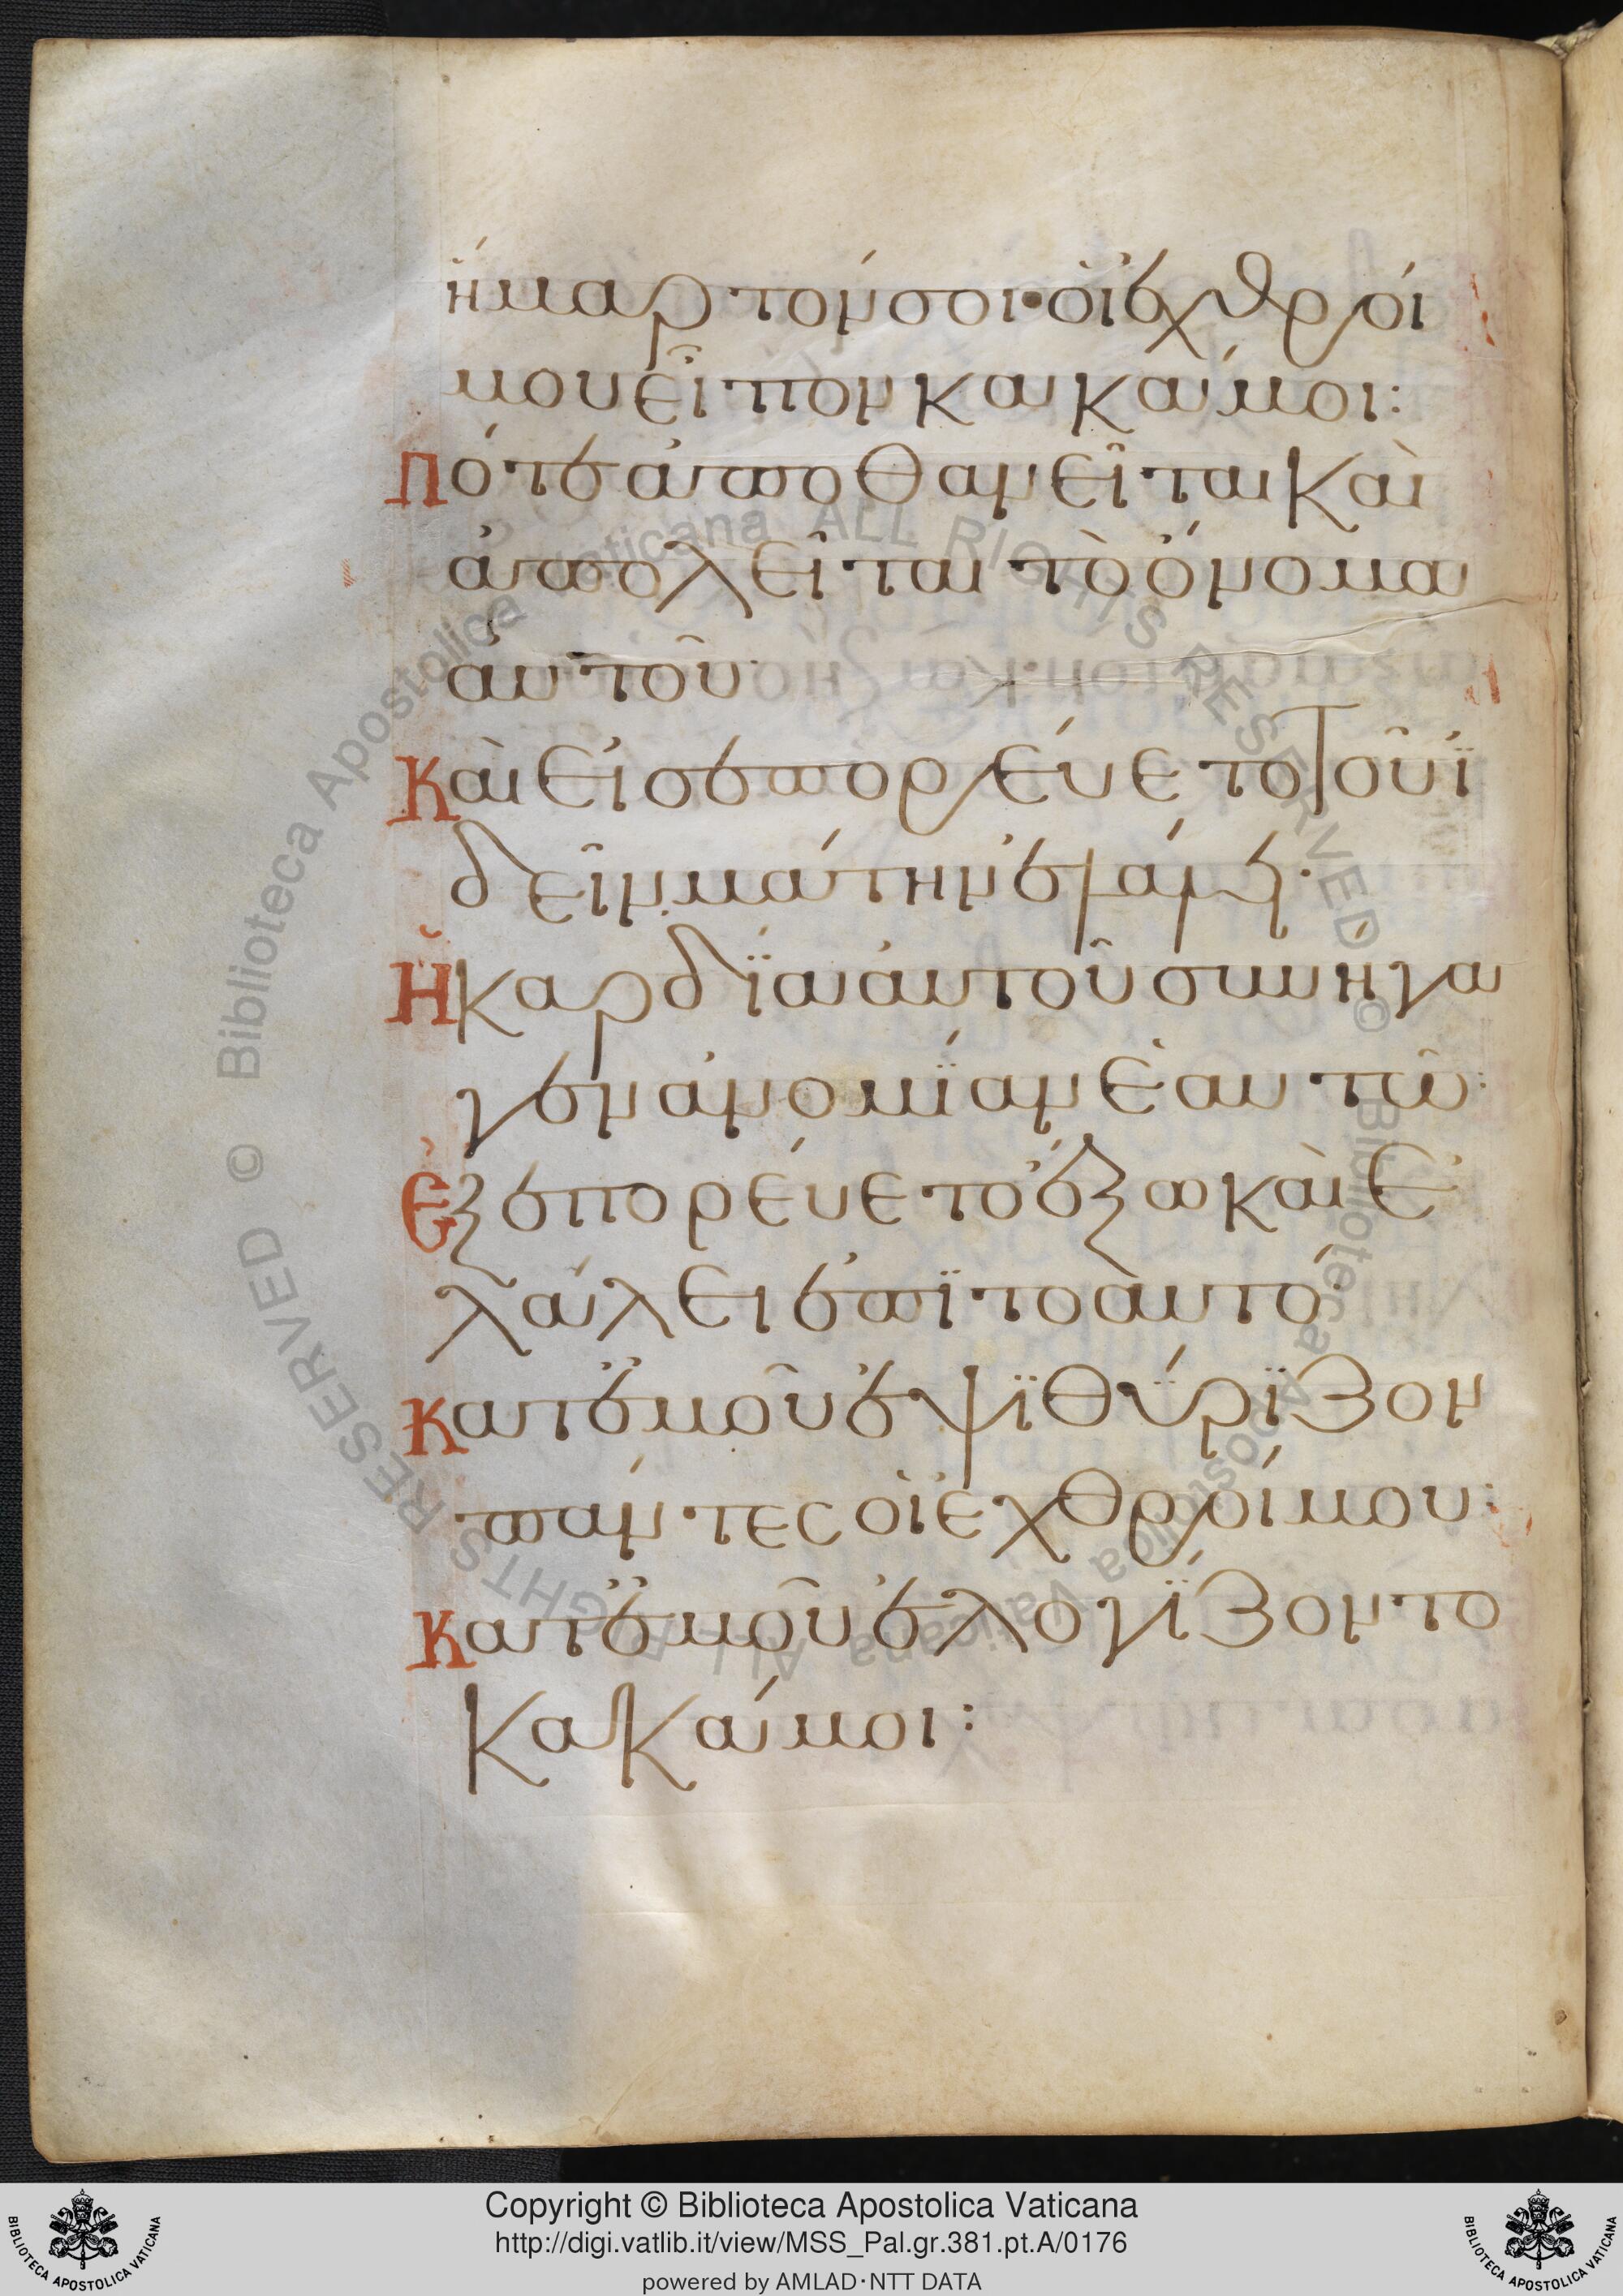 ἥμαρτόν σοι· οἱ ἐχθροί
μου εἶπον κακά μοι:
Πότε ἀποθανεῖται καὶ
ἀπολεῖται τὸ ὄνομα
αὐτοῦ·
Καὶ εἰσεπορεύετο τοῦ ἰ
δεῖν μάτην ἐλάλει·
Ἡ καρδία αὐτοῦ συνήγα
γεν ἀνομίαν ἑαυτῶ:
Ἐξεπορεύετο ἔξω καὶ ἐ
λάλει ἐπὶ τὸ αὐτό·
Κατ' ἐμοῦ ἐψιθύριζον
πάντες οἱ ἐχθροί μου:
Κατ' ἐμοῦ ἐλογίζοντο
κακά μοι:
Biblioteca Apostolica Vaticana ALL RIGHTS RESERVED ©
Biblioteca Apostolica Vaticana ALL RIGHTS RESERVED ©
BIBLIOTECA APOSTOLICA VATICANA
Copyright © Biblioteca Apostolica Vaticana
http://digi.vatlib.it/view/MSS_Pal.gr.381.pt.A/0176
powered by AMLAD·NTT DATA
BIBLIOTECA APOSTOLICA VATICANA